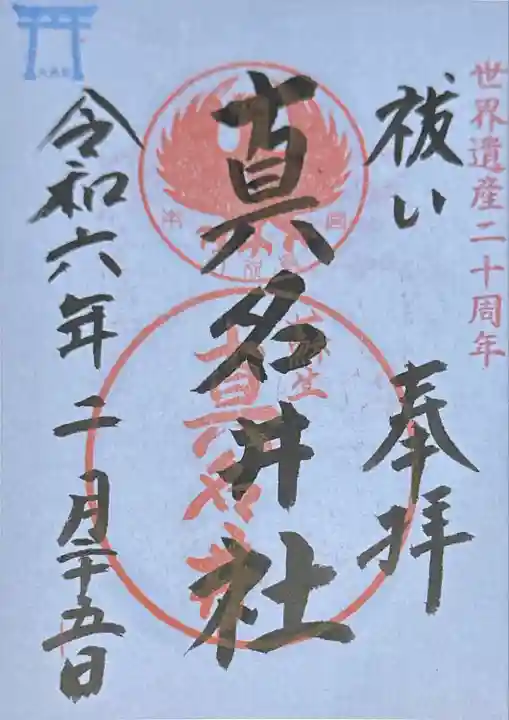 世界遺産二十周年
祓い
奉拝
真名井社
令和六年二月二十五日